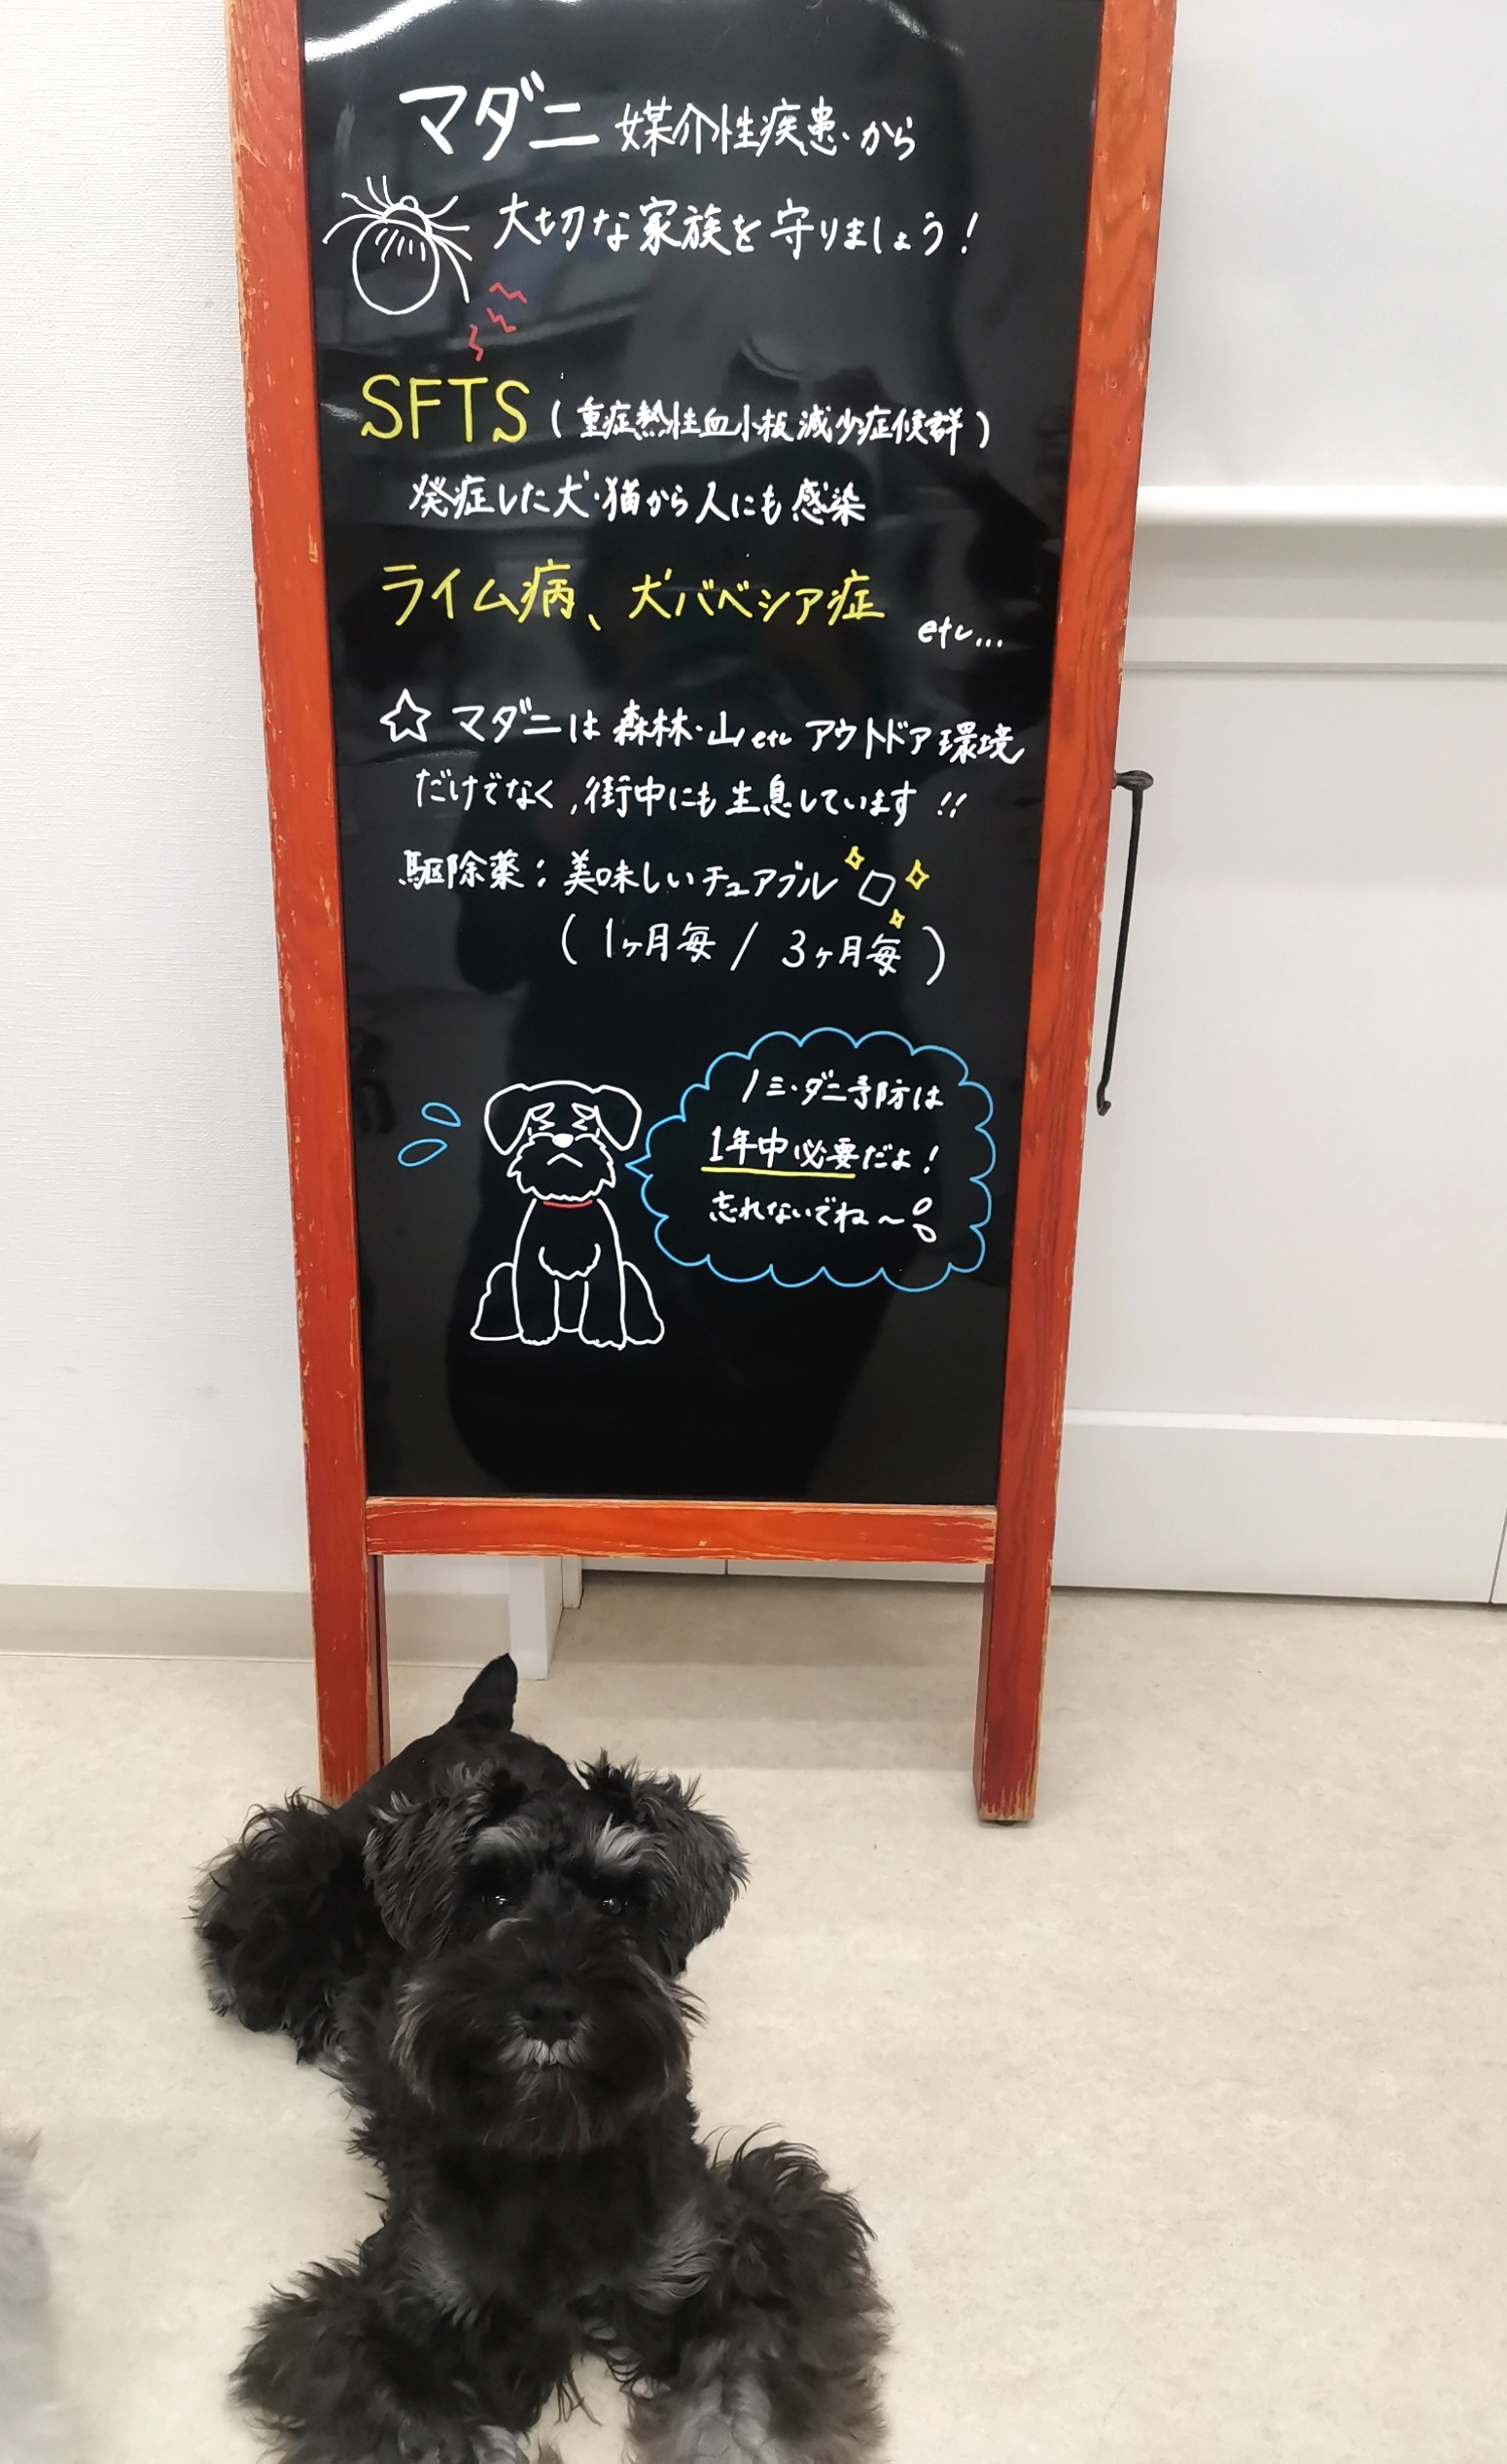 マダニ 媒介性疾患から
大切な家族を守りましょう！
SFTS（重症熱性血小板減少症候群）
発症した犬・猫から人にも感染
ライム病、犬バベシア症
etc...
☆ マダニは森林・山etc アウトドア環境
だけでなく,街中にも生息しています!!
駆除薬：美味しいチュアブル
（1ヶ月毎 / 3ヶ月毎）
ノミ・ダニ予防は
1年中必要だよ！
忘れないでね〜